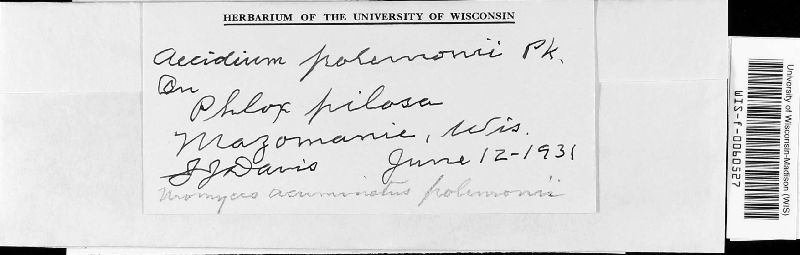 HERBARIUM OF THE UNIVERSITY OF WISCONSIN
Aecidium polemonii Pk.
On
Phlox pilosa
Mazomanie, Wis.
JJ Davis June 12-1931
Uromyces acuminatus polemonii
University of Wisconsin-Madison (WIS)
WIS-f-0060527